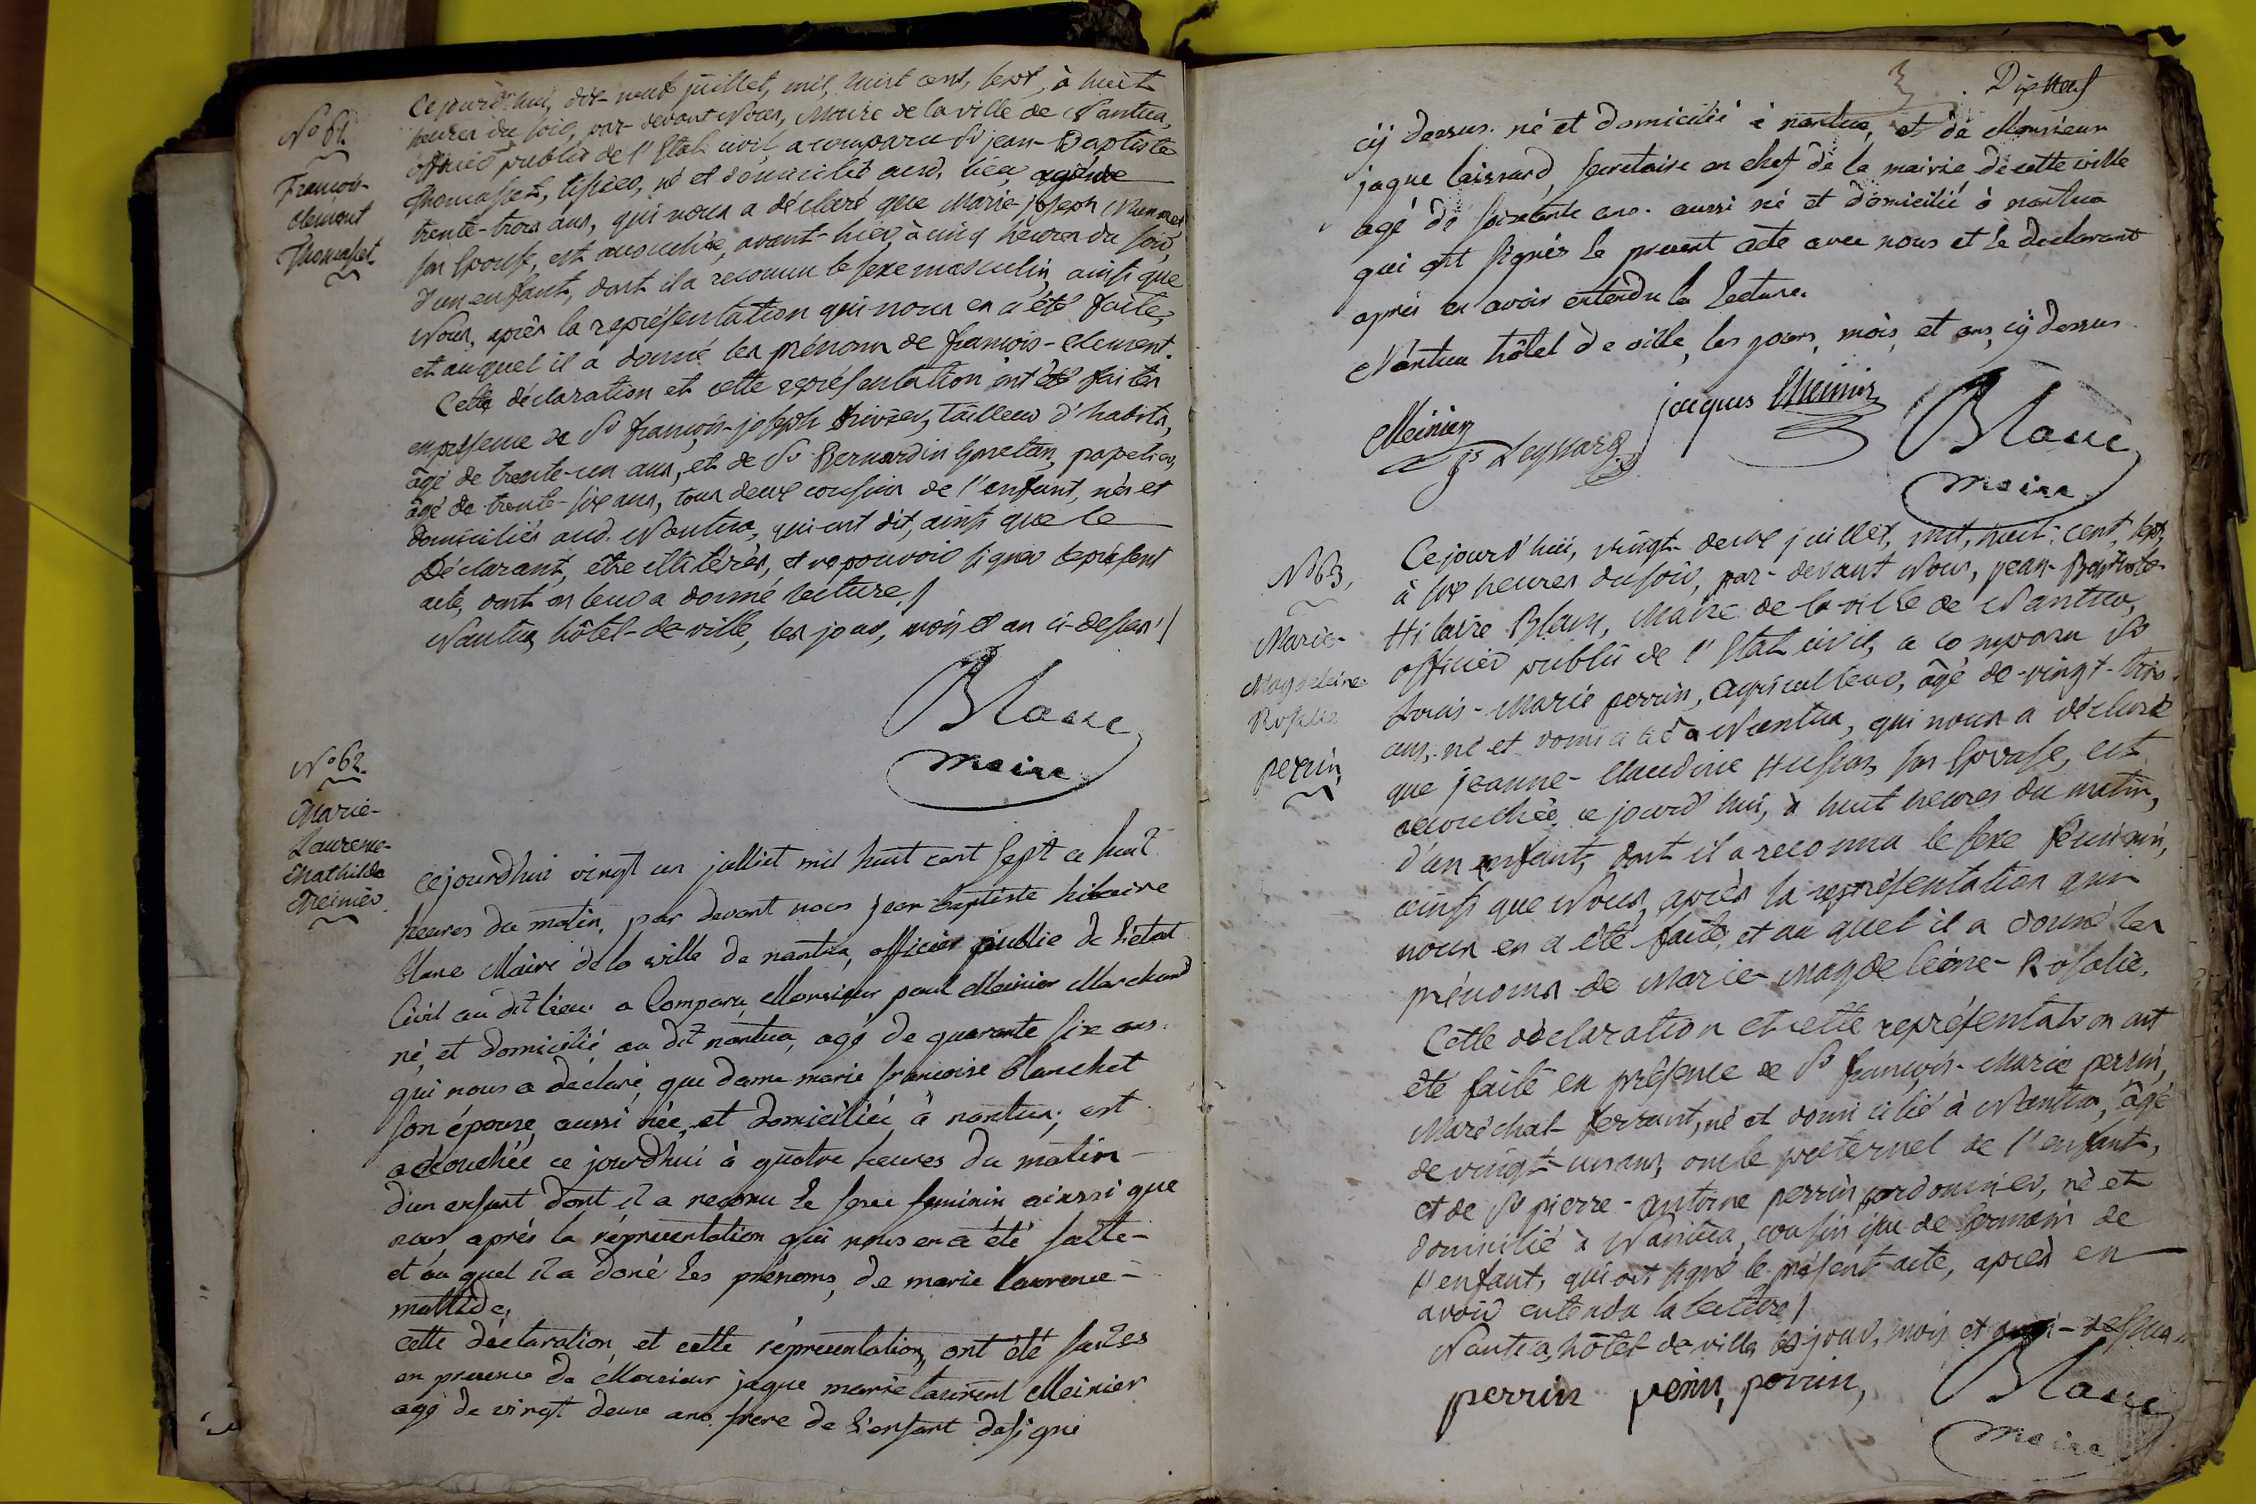 No 61.
François-
clement
Thomasset
Cejourd'hui, dix-neuf juillet, mil, huit cent, sept, à huit
heures du soir, par-devant Nous, Maire de la ville de Nantua,
officier public de l'Etat civil, a comparu Sr jean-Baptiste
Thomasset, tissier, né et domicilié aud. lieu, agé de
trente-trois ans, qui nous a déclaré que Marie-joseph
son Epouse, est accouchée, avant-hier, à cinq heures du soir,
d'un enfant, dont il a reconnu le sexe masculin, ainsi que
Nous, après la représentation qui nous en a été faite,
et auquel il a donné les prénoms de francois-clement.
Cette déclaration et cette représentation ont été faites
en présence de Sr françois-joseph tailleur d'habits,
âgé de trente-un ans, et de Sr Bernardin papetier,
âgé de trente-six ans, tous deux cousins de l'enfant, nés et
domiciliés aud. Nantua, qui ont dit, ainsi que le
Déclarant, être illitérés, et ne pouvoir signer le présent
acte, dont on leur a donné lecture./
Nantua, hôtel-de-ville, les jour, mois et an ci-dessus./
Blanc
maire
No 62.
Marie-
Laurence-
Mathilde
Meinier
Cejourd'hui vingt un julliet mil huit cent sept a huit
heures du matin, par devant nous jean baptiste hilaire
blanc Maire de la ville de nantua, officier public de l'état
Civil au dit lieu a Comparu Monsieur paul Meinier Marchand
né, et domicilié au dit nantua, agé de quarante six ans.
qui nous a déclaré, que dame marie francoise blanchet
son épouse, aussi née, et domiciliée à nantua, est
accouchée ce jourd'hui à quatre heures du matin
d'un enfant dont il a reconu le sexe feminin ainssi que
nous aprés la répresentation qui nous en a été faitte
et au quel il a doné les prénoms, de marie laurence-
mattide,
cette déclaration, et cette répresentation, ont été faites
en presence de Monsieur jaque marie laurent Meinier
agé de vingt deux ans. frere de l'enfant désigné
3. Dix Neuf
cÿ dessus. né et domicilié à nantua, et de Monsieur
jaque laissard, secretaire en chef de la mairie de cette ville
agé de soixante ans. aussi né et domicilié à nantua
qui ont signés le present acte avec nous et le declarant
aprés en avoir entendu la lecture.
Nantua hôtel de ville, les jours, mois, et ans, cÿ dessus.
Meinier
js Leyssard
jacques Meinier
Blanc
maire
No 63,
Marie-
Magdeleine-
Rosalie
perrin,
Cejourd'hui, vingt-deux juillet, mil, huit cent, sept,
à six heures du soir, par-devant Nous, jean-Baptiste-
Hilaire Blanc, Maire de la ville de Nantua,
officier public de l'Etat civil, a comparu Sr
Louis-Marie perrin, agriculteur, âgé de vingt-trois
ans, né et domicilié à Nantua, qui nous a déclaré
que jeanne-Claudine son Epouse, est
accouchée, ce jourd'hui, à huit heures du matin,
d'un enfant, dont il a reconnu le sexe féminin,
ainsi que Nous, après la représentation qui
nous en a été faite, et au quel il a donné les
prénoms de Marie-Magdeleine-Rosalie.
Cette déclaration et cette représentation ont
été faite en présence de Sr françois-Marie perrin,
Maréchal-ferrant, né et domicilié à Nantua, âgé
de vingt-un ans, oncle paternel de l'enfant,
et de Sr pierre-antoine perrin, cordonnier, né et
domicilié à Nantua, cousin issu de germain de
l'enfant, qui ont signé le présent acte, après en
avoir entendu la lecture./
Nantua, hôtel de ville, les jour, mois et an ci-dessus
perrin perrin, perrin,
Blanc
maire